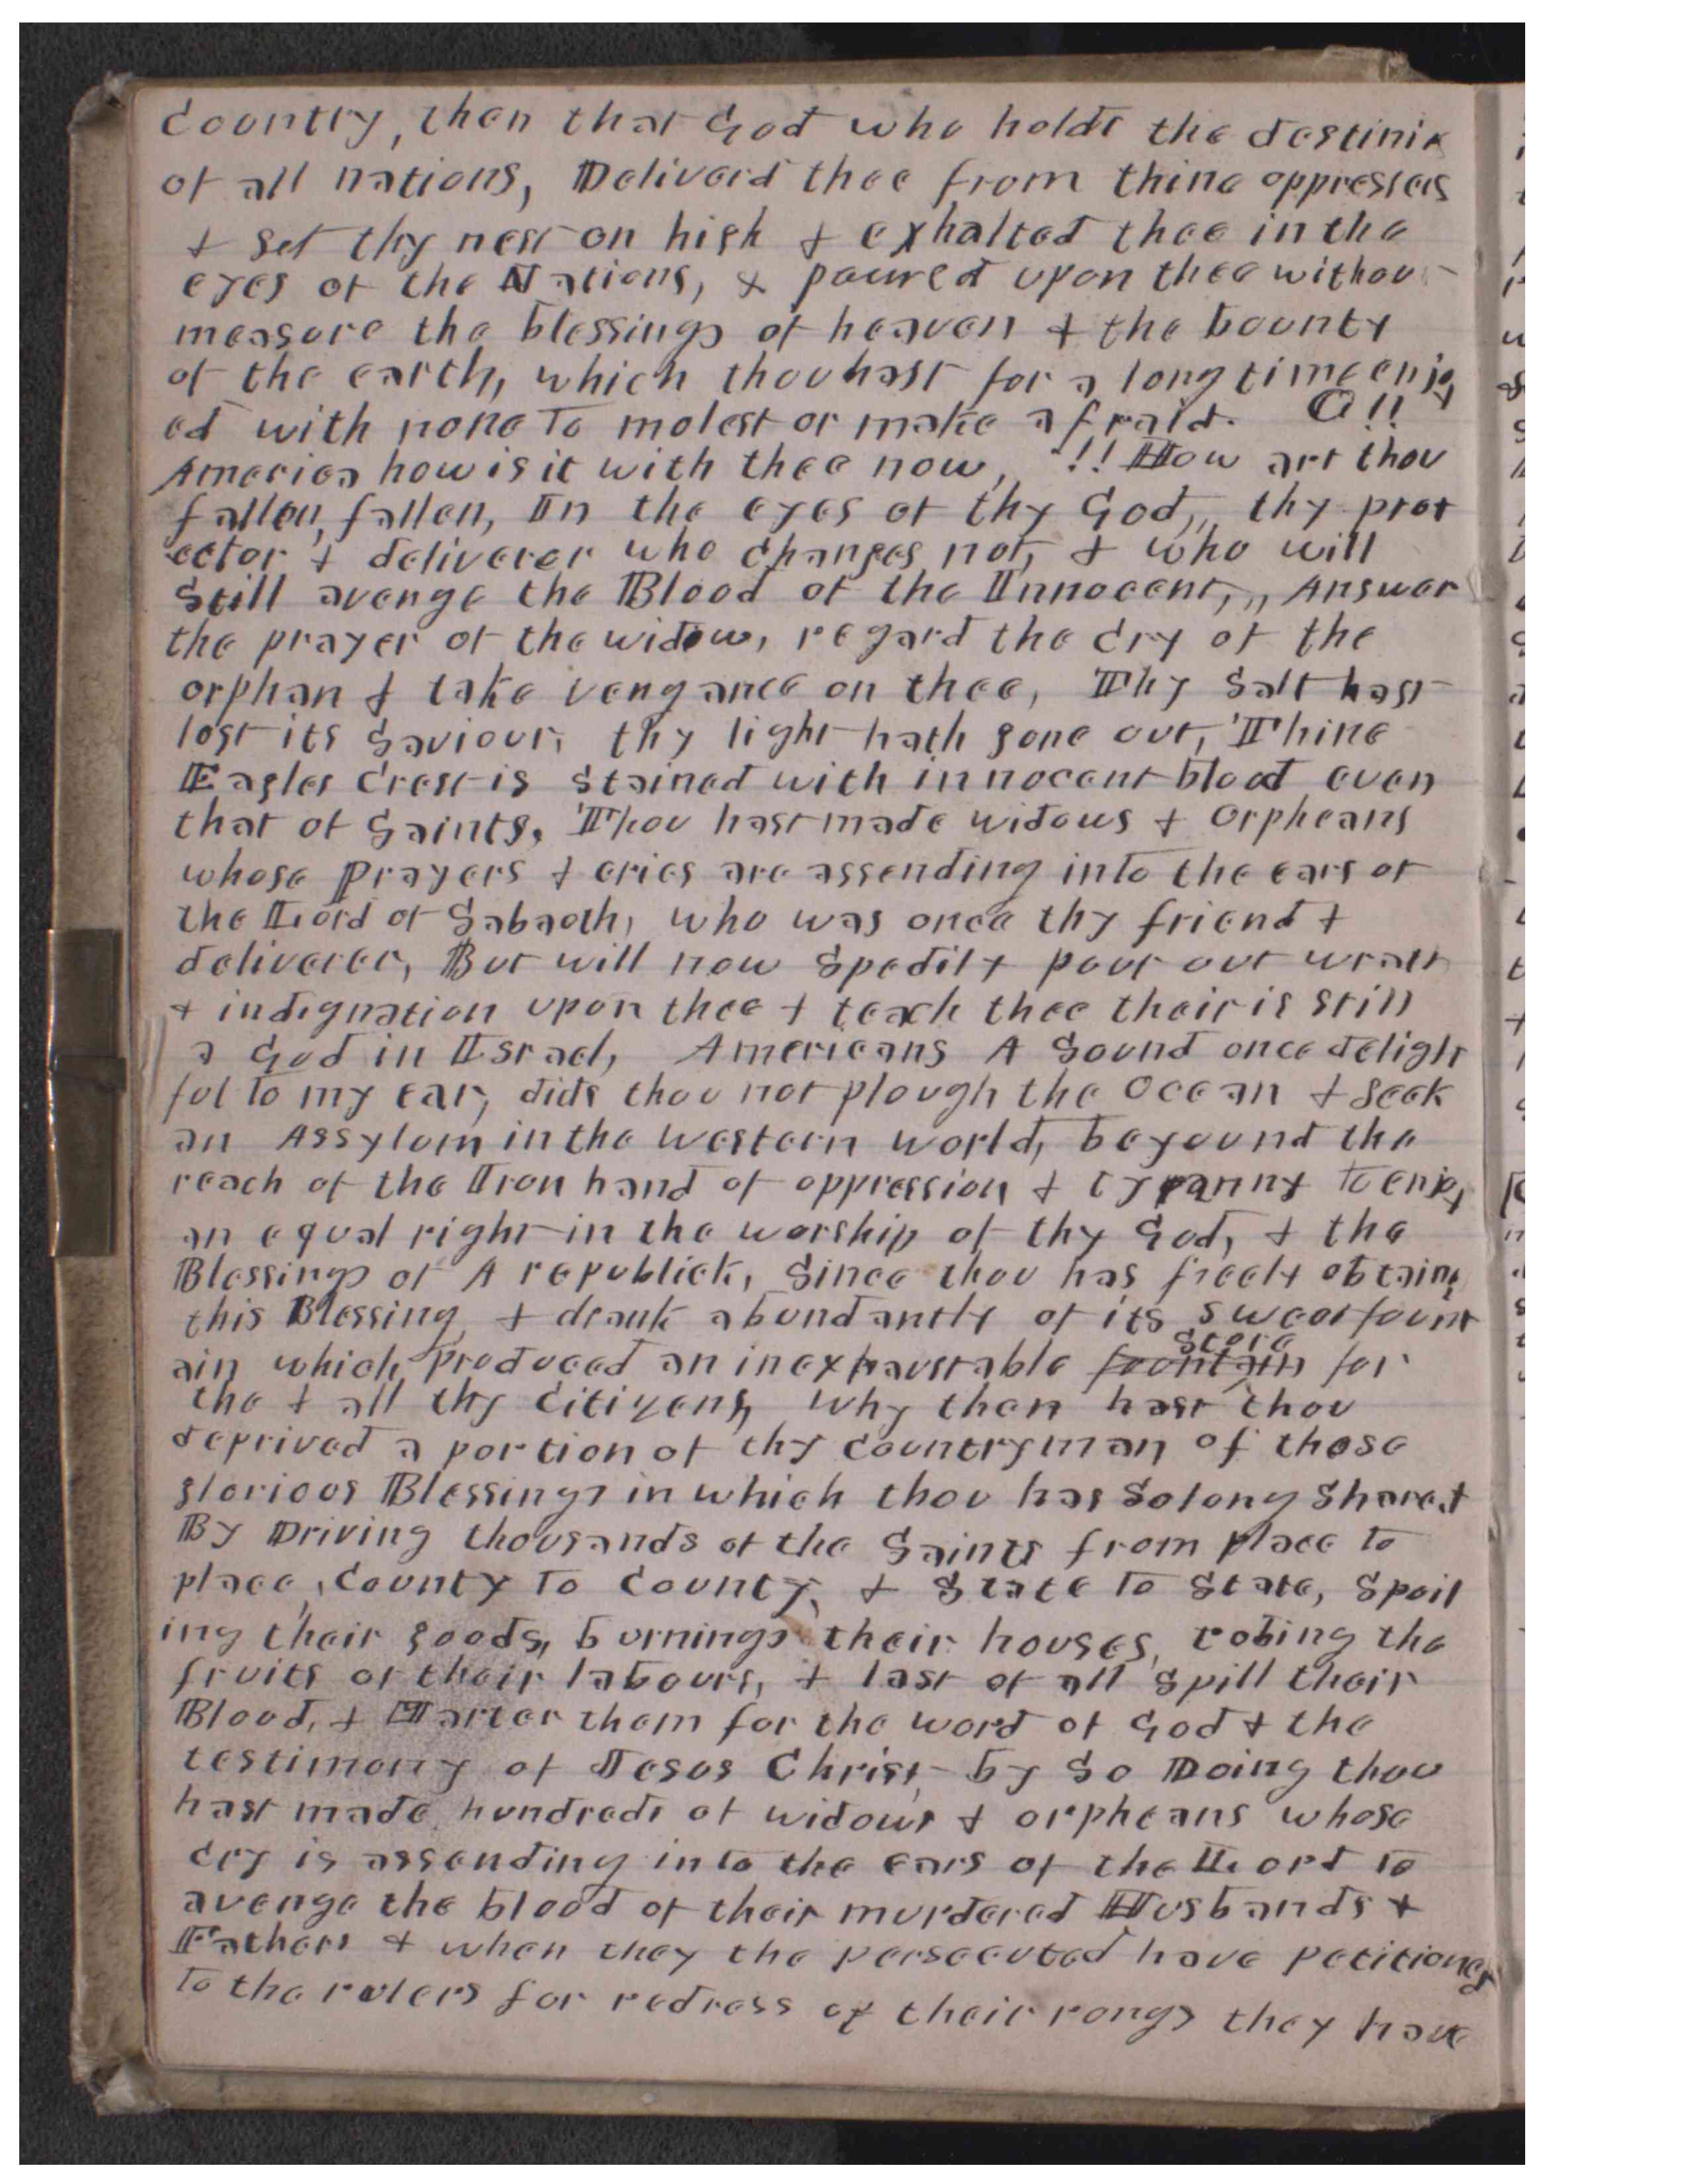 Country, then that God who holds the destinie
of all nations, Deliverd thee from thine oppressers
& set thy nest on high & exhalted thee in the
eyes of the Nations, & poured upon thee withou
measure the blessings of heaven & the bounty
of the earth, which thou hast for a long time enjoy
ed with none to molest or make afraid. O!!
America how is it with thee now, !! How art thou
fallen, fallen, In the eyes of thy God,,, thy prot
ector & deliverer who changes not, & who will
Still avenge the Blood of the Innocent,,, Answer
the prayer of the widow, regard the cry of the
orphan & take vengance on thee, Thy Salt hast
lost its Saviour, thy light hath gone out, Thine
Eagles Crest is Stained with innocent blood even
that of Saints, Thou hast made widows & Orpheans
whose prayers & cries are assending into the ears of
the Lord of Sabaoth, who was once thy friend &
deliverer, But will now Spedily pour out wrath
& indignation upon thee & teach thee their is still
a God in Israel, Americans A Sound once deligh
ful to my ear, dids thou not plough the Ocean & Seek
an Assylum in the western world, beyound the
reach of the Iron hand of oppression & tyranny to enjoy
an equal right in the worship of thy God, & the
Blessings of A republick, Since thou has freely obtaind
this Blessing & drank abundantly of its sweet fount
ain which produced an inexhaustable fountain Store for
the & all thy Citizens, why then hast thou
deprived a portion of thy Countryman of those
glorious Blessings in which thou has So long Shared
By Driving thousands of the Saints from place to
place, County to County, & State to State, Spoil
ing their goods, burnings their houses, robing the
fruits of their labours, & last of all Spill their
Blood, & Marter them for the word of God & the
testimony of Jesus Christ by So Doing thou
hast made hundreds of widows & orpheans whose
cry is assending into the ears of the Lord to
avenge the blood of their murdered Husbands &
Fathers & when they the persecuted have petitioned
to the rulers for redress of their rongs they have